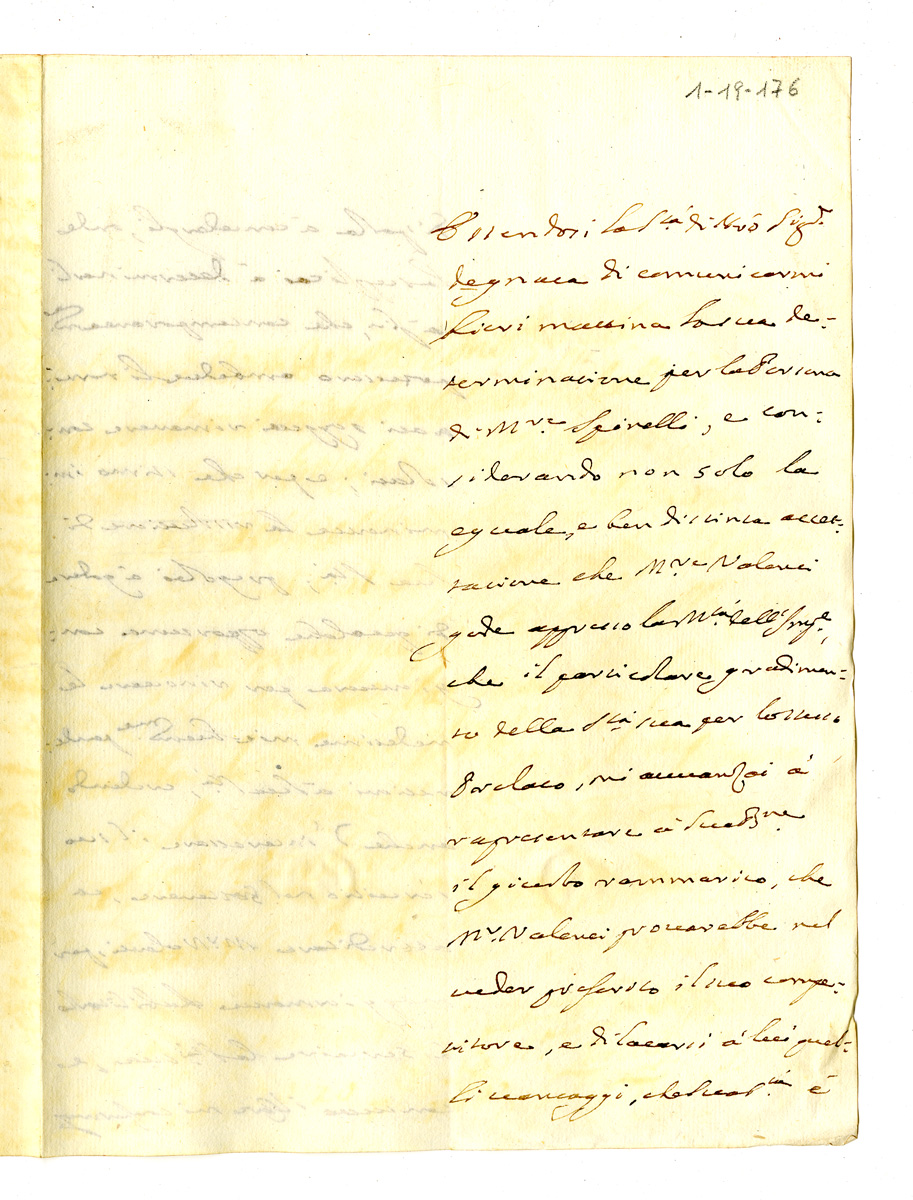 1-19-176
Essendosi la S.tà di Nrō Sig.re
degnata di comunicarmi
hieri mattina la sua de-
terminatione per la Persona
di M.re Spinelli, e con-
siderando non solo la
eguale, e ben distinta accet-
tatione che M.re Valenti
gode appresso la M.tà dell'Imp.re,
che il particolare gradimen-
to della S.tà sua per lo stesso
Prelato, mi avvanzai à
rapresentare à Sua B.ne
il giusto rammarico, che
M.r Valenti provarebbe nel
veder preferito il suo compe-
titore, e dilatarsi à lui quel-
li vantaggi, che Sua S.tà è